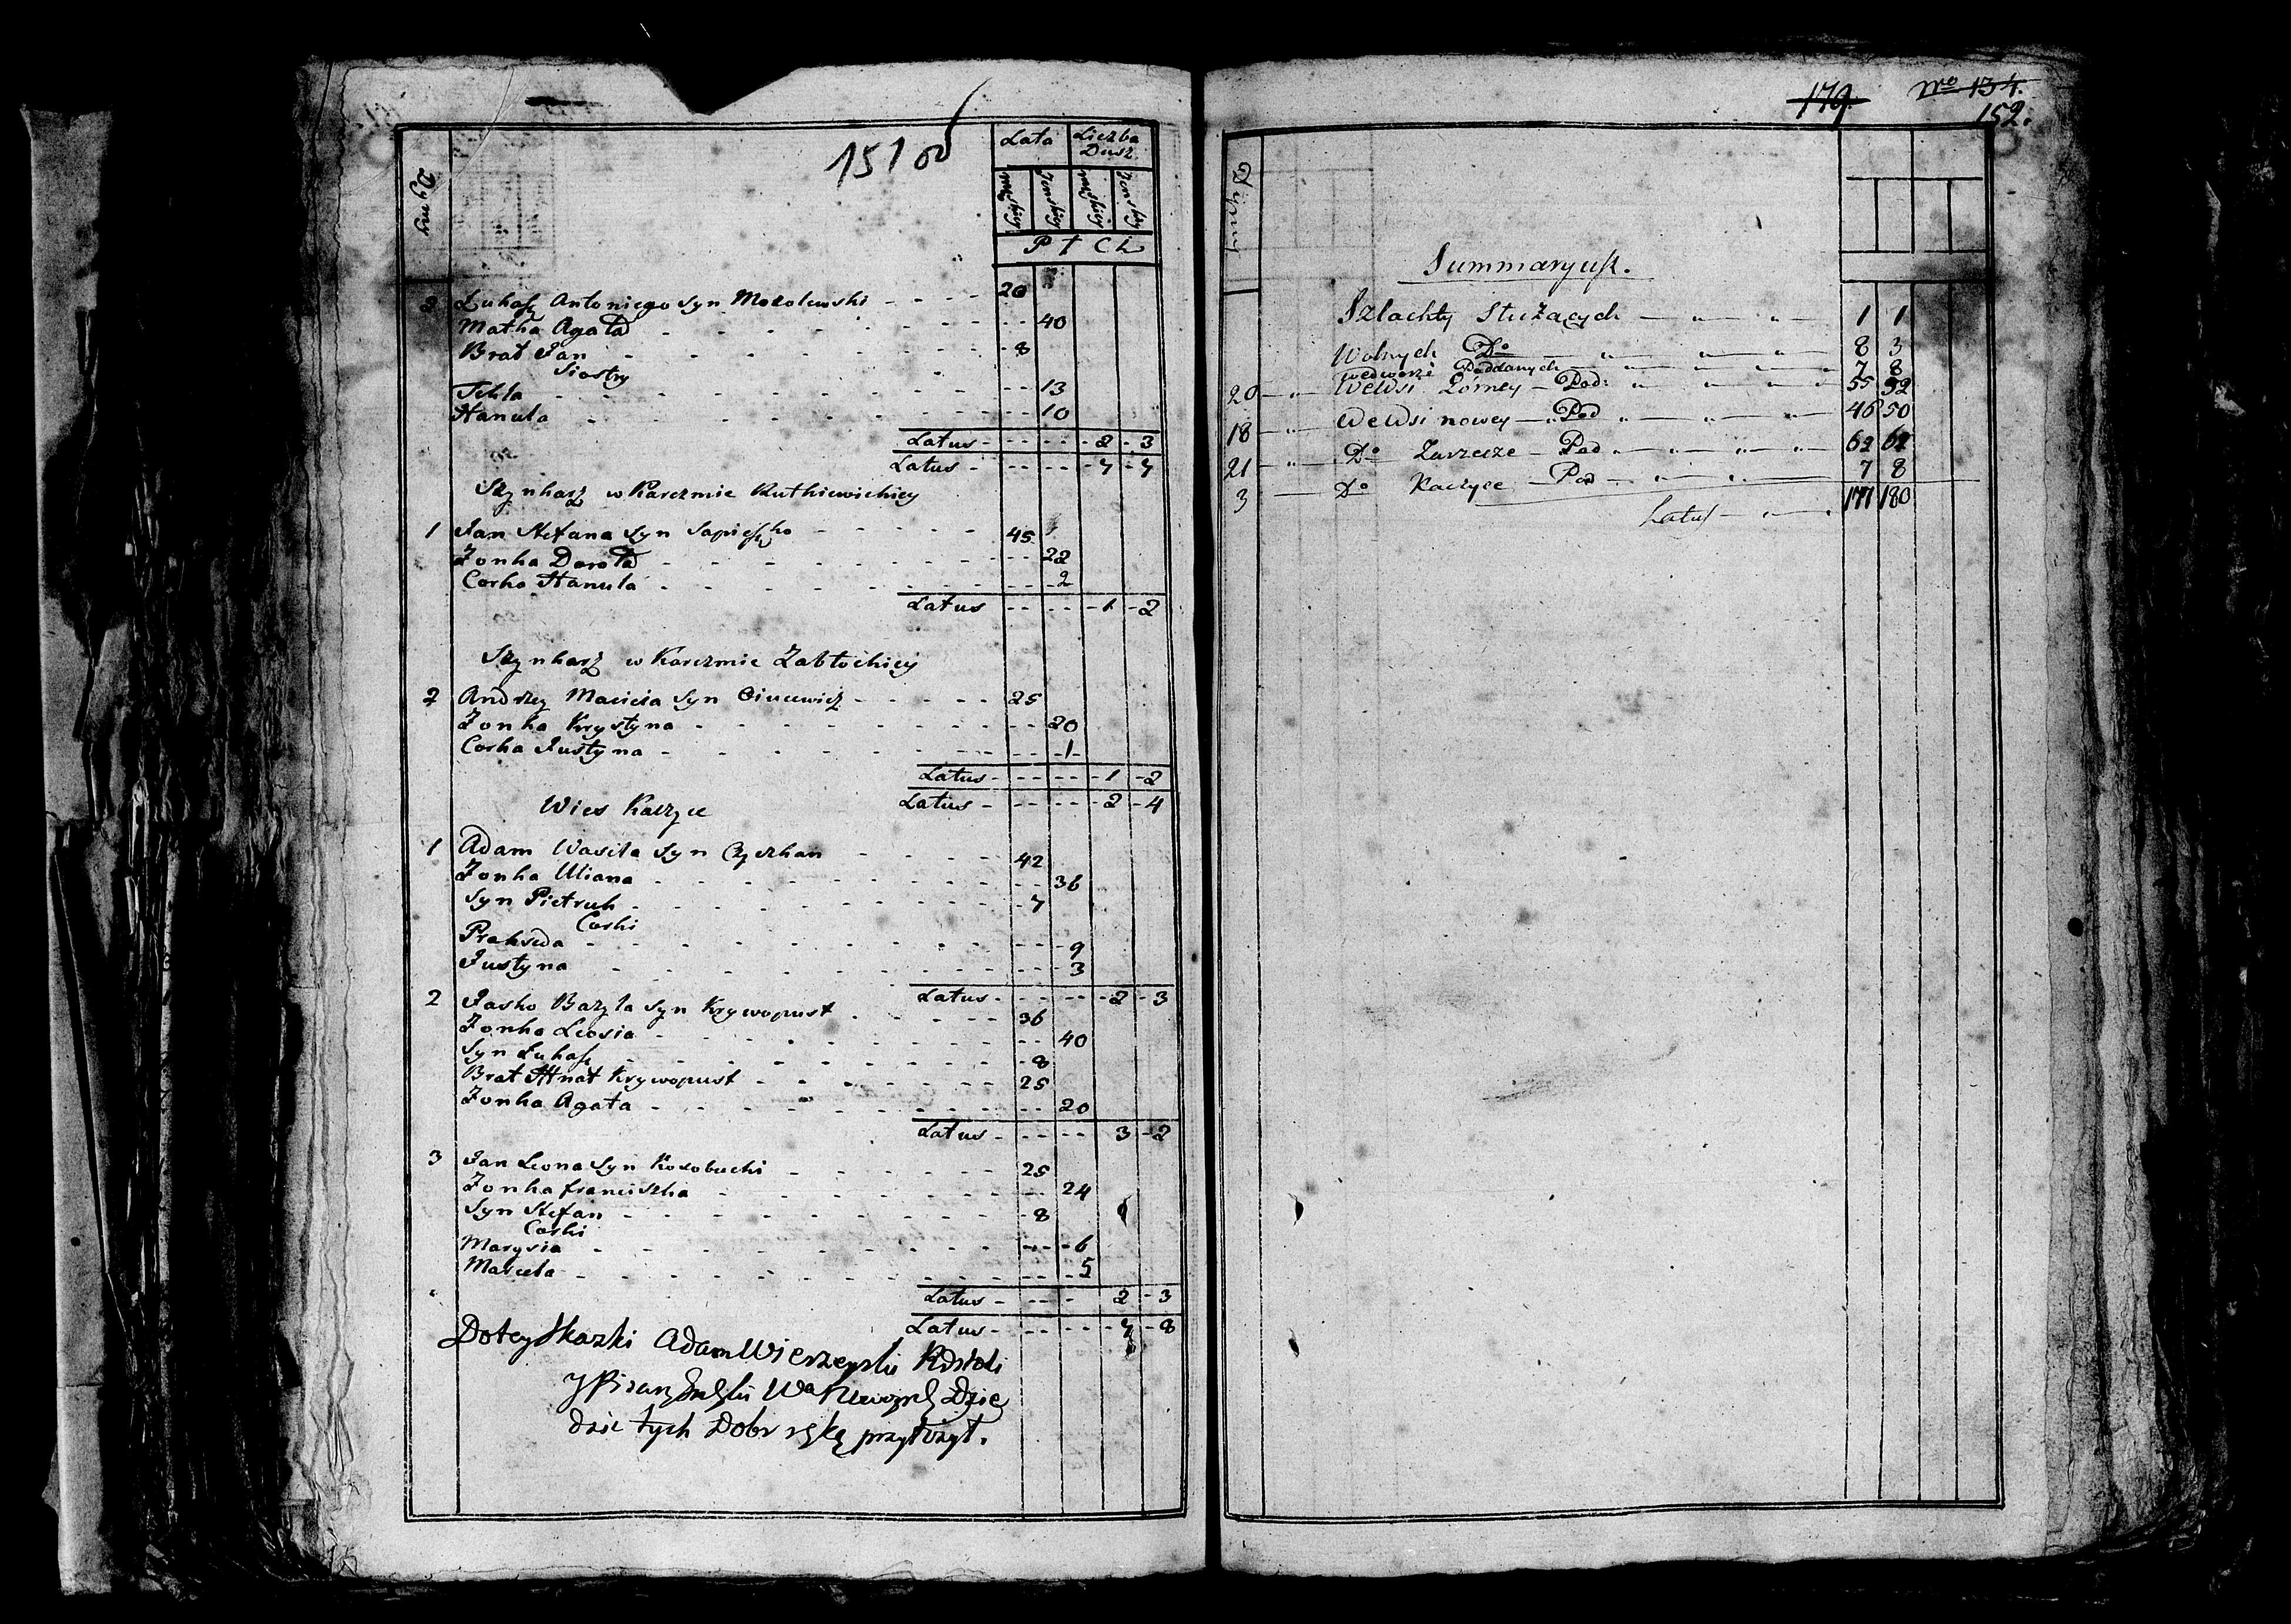 151 об
Dymy
Lata Liczba Dusz
męskiey żonskiey męskiey żonskiey
P T C L
2 Łukasz Antoniego Syn Mozolewski 20
Matka Agata 40
Brat Jan 8
Siostry
Tekla 13
Hanula 10
Latus 2 3
Latus 7 7
Szynkarz w Karczmie Rutkiewickiey
1 Jan Stefana Syn Sapieszko 45
Żonka Dorota 22
Corka Hanula 2
Latus 1 2
Szynkarz w Karczmie Zabłockiey
2 Andrzey Macieia Syn 25
Żonka Krystyna 20
Corka Justyna 1
Latus 1 2
Latus 2 4
Wies Kaczyce
1 Adam Wasila Syn Czeczkan 42
Żonka Uliana 36
Syn Pietruk 7
Corki
Prakseda 9
Justyna 3
Latus 2 3
2 Jasko Bazyla Syn Krywopust 36
Żonka Leosia 40
Syn Łukasz 8
Brat Hnat Krywopust 25
Żonka Agata 20
Latus 3 2
3 Jan Leona Syn Kosobucki 25
Żonka franciszka 24
Syn Stefan 8
Corki
Marysia 6
Marcela 5
Latus 2 3
Latus 7 8
Do tey Skazki Adam Wierzeyski
Dzie
dzic tych Dobr rękę przyłożył.
179. No 134.
152.
Dymy
Summaryusz.
Szlachty Służących 1 1
Wolnych Do 8 3
we dworze Poddanych 7 8
20 We Wsi Górney Pod: 55 52
18 We Wsi nowey Pod 46 50
21 Do Zarzecze Pod 62 62
3 Do Kaczyce Pod 7 8
Latus 177 180